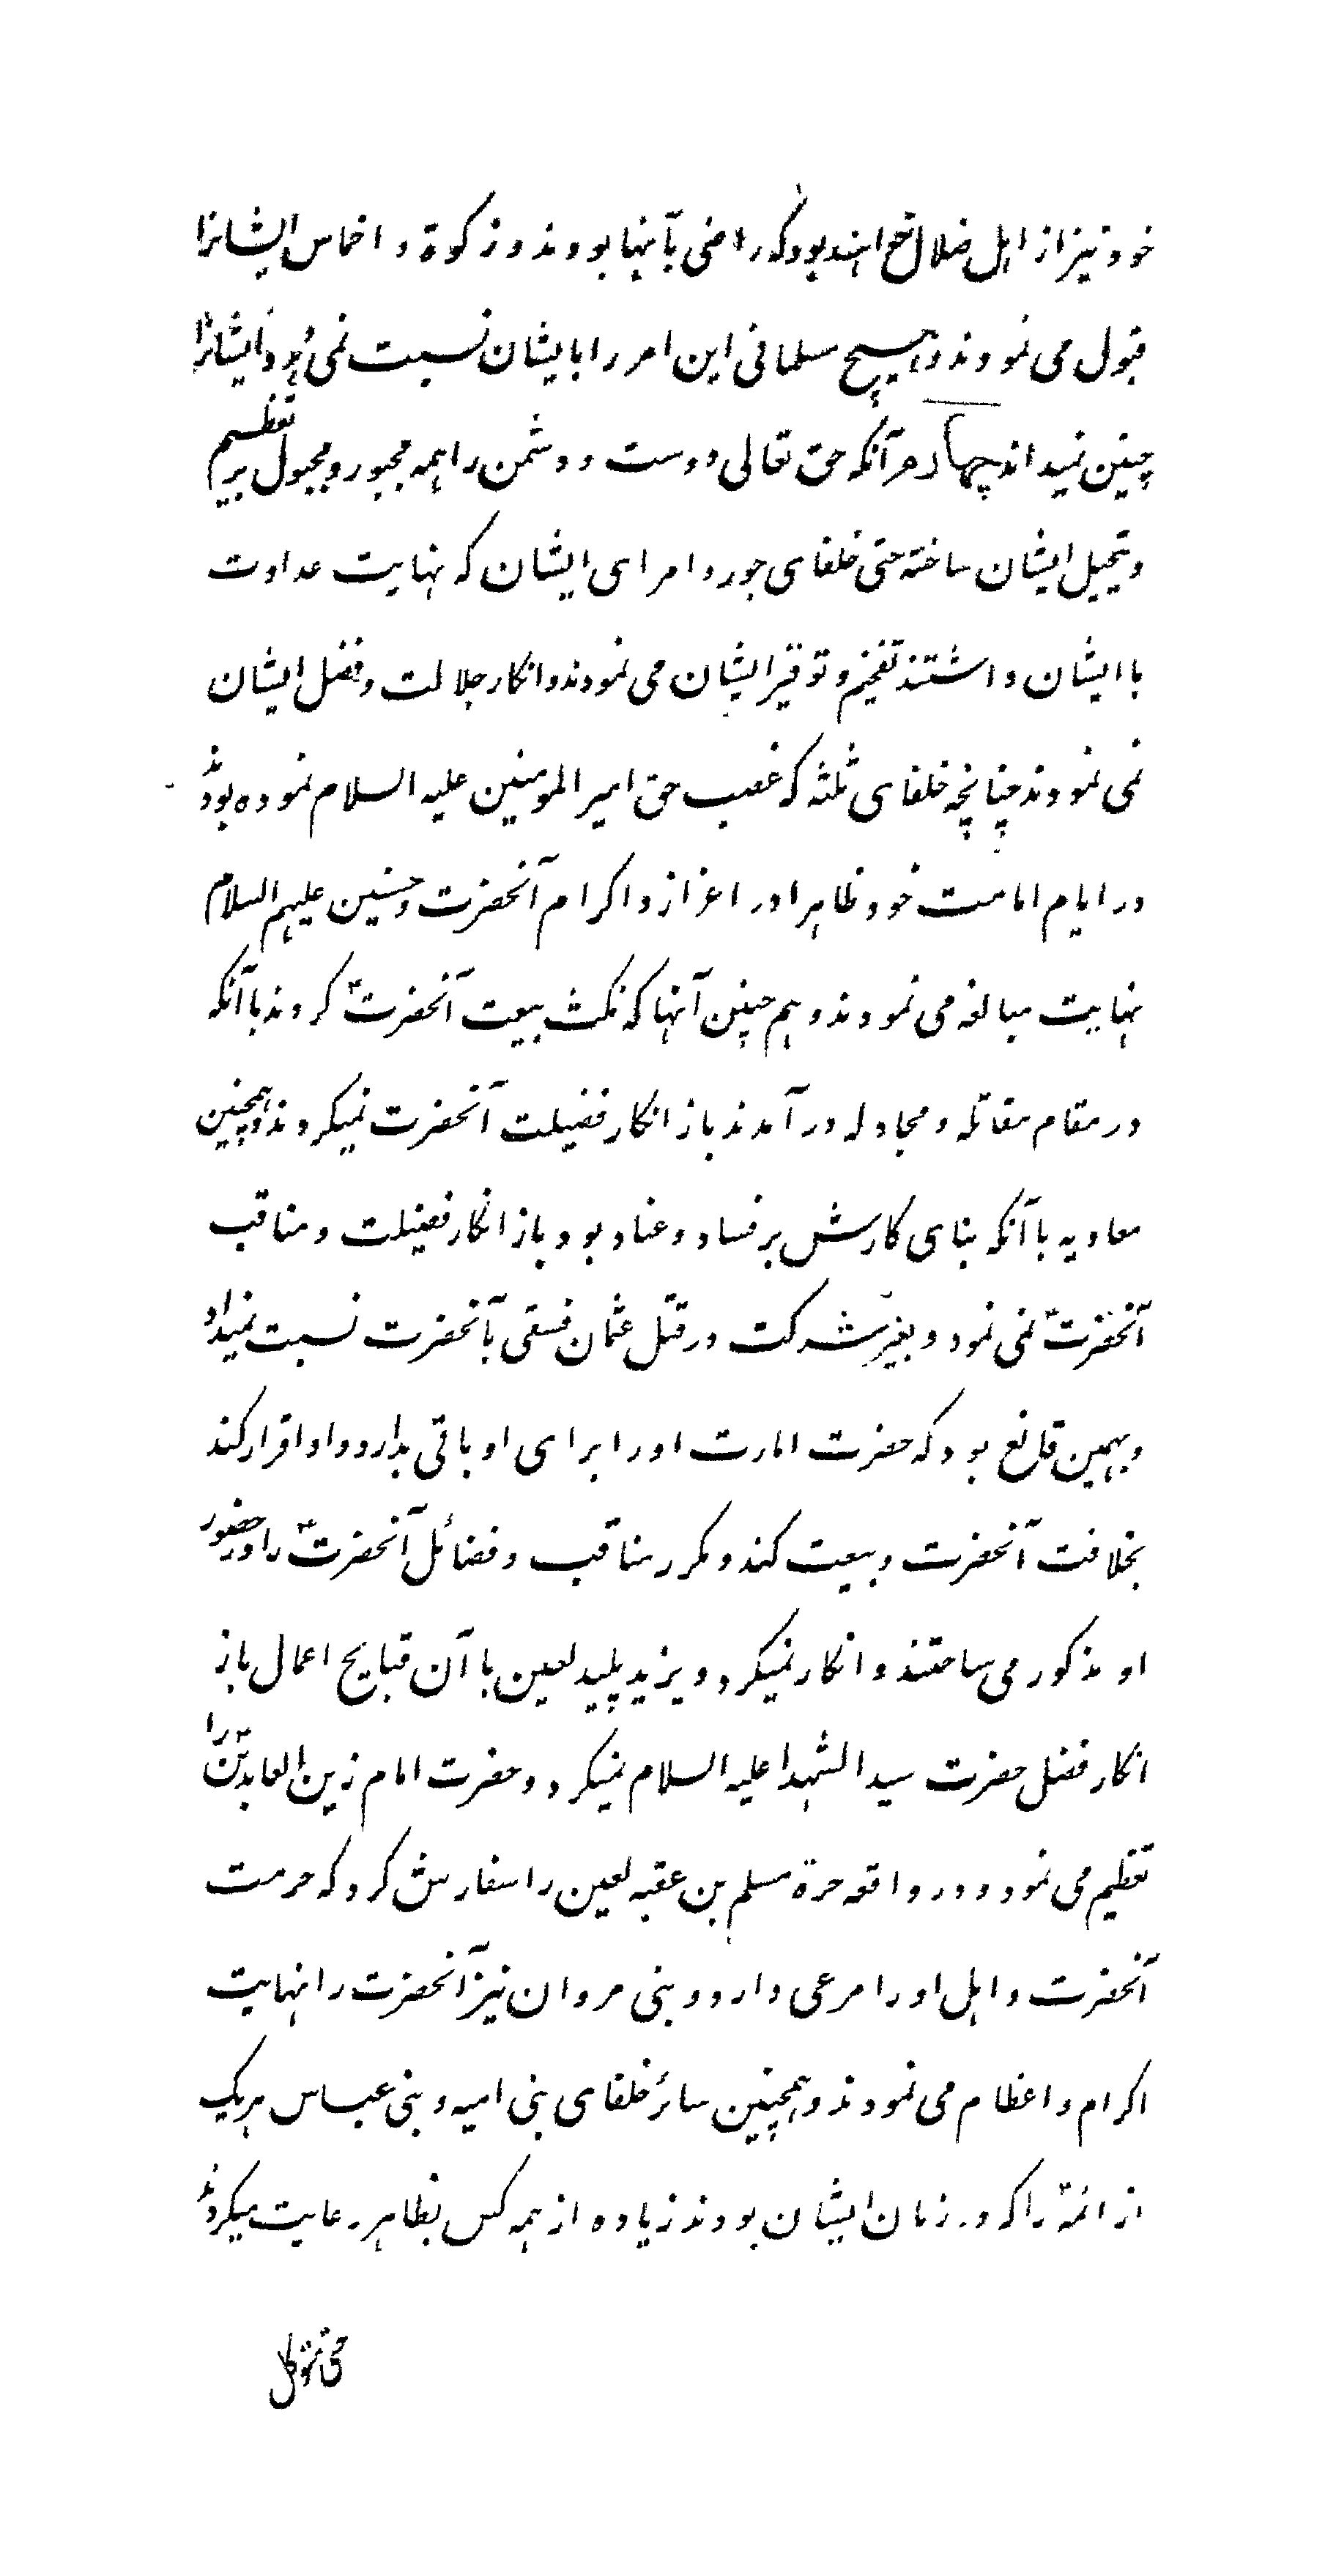 خود نیز از اهل ضلال خواهند بود که راضی بآنها بودند و زکوة و اخماس ایشانرا
قبول می نمودند و هیچ مسلمانی این امر را بایشان نسبت نمی دهد و ایشانرا
چنین نمیداند چهارم آنکه حق تعالی دوست و دشمن را همه مجبور و مجبول بر تعظیم
و تبجیل ایشان ساخته حتی خلفای جور و امرای ایشان که نهایت عداوت
با ایشان داشتند تفخیم و توقیر ایشان می نمودند و انکار جلالت و فضل ایشان
نمی نمودند چنانچه خلفای ثلثه که غصب حق امیر المومنین علیه السلام نموده بودند
در ایام امامت خود ظاهرا در اعزاز و اکرام آنحضرت و حسنین علیهم السلام
نهایت مبالغه می نمودند و هم چنین آنها که نکث بیعت آنحضرتؑ کردند با آنکه
در مقام مقاتله و مجادله در آمدند باز انکار فضیلت آنحضرت نمیکردند و همچنین
معاویه با آنکه بنای کارش بر فساد و عناد بود باز انکار فضیلت و مناقب
آنحضرتؑ نمی نمود و بغیر شرکت در قتل عثمان فسقی بآنحضرت نسبت نمیداد
و بهمین قانع بود که حضرت امارت او را برای او باقی بدارد و او اقرار کند
بخلافت آنحضرت و بیعت کند و مکرر مناقب و فضائل آنحضرتؑ را در حضور
او مذکور می ساختند و انکار نمیکرد و یزید پلید لعین با آن قبایح اعمال باز
انکار فضل حضرت سید الشهدا علیه السلام نمیکرد و حضرت امام زین العابدینؑ را
تعظیم می نمود و در واقعه حرة مسلم بن عقبه لعین را سفارش کرد که حرمت
آنحضرت و اهل او را مرعی دارد و بنی مروان نیز آنحضرت را نهایت
اکرام و اعظام می نمودند و همچنین سائر خلفای بنی امیه و بنی عباس هریک
از ائمهؑ را که در زمان ایشان بودند زیاده از همه کس بظاهر رعایت میکردند
حتی متوکل